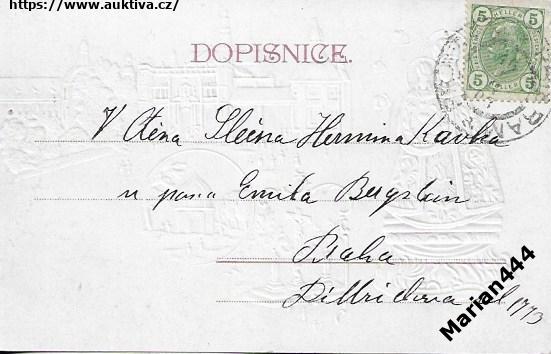 https://www.auktiva.cz/
5 5
HELLER
5 5
DOPISNICE.
V Ctěna Slečna Hermina Kavka
u pana Emila Bergstein
Praha
Dittrichova ul 1773
Marian444